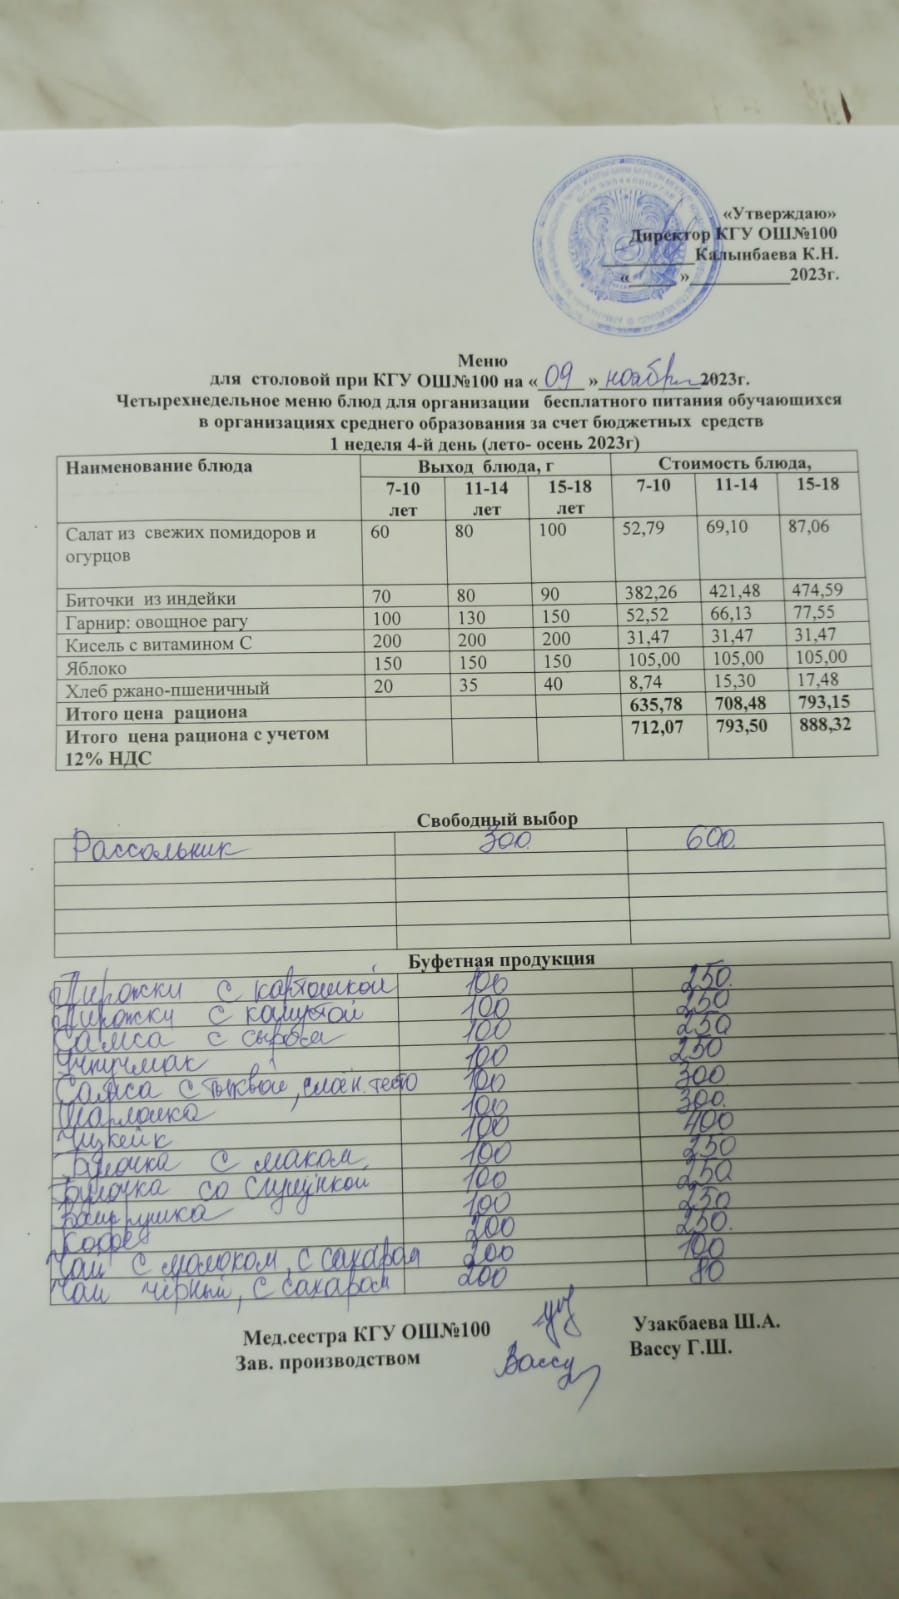 «Утверждаю»
Директор КГУ ОШ№100
____________Калынбаева К.Н.
«_____ »___________2023г.
Меню
для столовой при КГУ ОШ№100 на « 09 » ноября 2023г.
Четырехнедельное меню блюд для организации бесплатного питания обучающихся
в организациях среднего образования за счет бюджетных средств
1 неделя 4-й день (лето- осень 2023г)
Наименование блюда Выход блюда, г Стоимость блюда,
7-10 лет 11-14 лет 15-18 лет 7-10 11-14 15-18
Салат из свежих помидоров и огурцов 60 80 100 52,79 69,10 87,06
Биточки из индейки 70 80 90 382,26 421,48 474,59
Гарнир: овощное рагу 100 130 150 52,52 66,13 77,55
Кисель с витамином С 200 200 200 31,47 31,47 31,47
Яблоко 150 150 150 105,00 105,00 105,00
Хлеб ржано-пшеничный 20 35 40 8,74 15,30 17,48
Итого цена рациона 635,78 708,48 793,15
Итого цена рациона с учетом 12% НДС 712,07 793,50 888,32
Свободный выбор
Рассольник 300. 600.
Буфетная продукция
Пирожки с картошкой 100 250.
Пирожки с капустой 100 250
Самса с сыром 100 250
Учпучмак 100 250
Самса с тыквой, слоён. тесто 100 300
100 300.
Чизкейк 100 400
Булочка с маком 100 250
Булочка со сгущёнкой 100 250
Ватрушка 100 250
Кофе 200 250.
Чай с молоком, с сахаром 200 100
Чай чёрный, с сахаром 200 80
Мед.сестра КГУ ОШ№100 Узакбаева Ш.А.
Зав. производством Вассу Вассу Г.Ш.